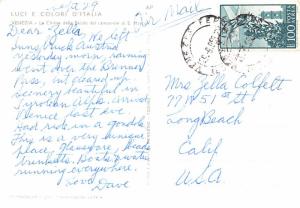 Sept 29
LUCI E COLORI D'ITALIA
VENEZIA - La Chiesa della Salute dal campanile di S. M
Air Mail
Dear Zella, We left
Innsbruck Austria
yesterday morn, raining
went over the Brenner
Pass, but cleared up
scenery beautiful in
Tyrolean Alps. Arrived
Venice last eve
Had ride in a gondola
This is a very unique
place, Glassware, beads
trinkets. Boats & water
running everywhere.
Love
Dave
Mrs Zella Colfelt
277 W 51 st St
Long Beach
Calif
U.S.A.
L.100